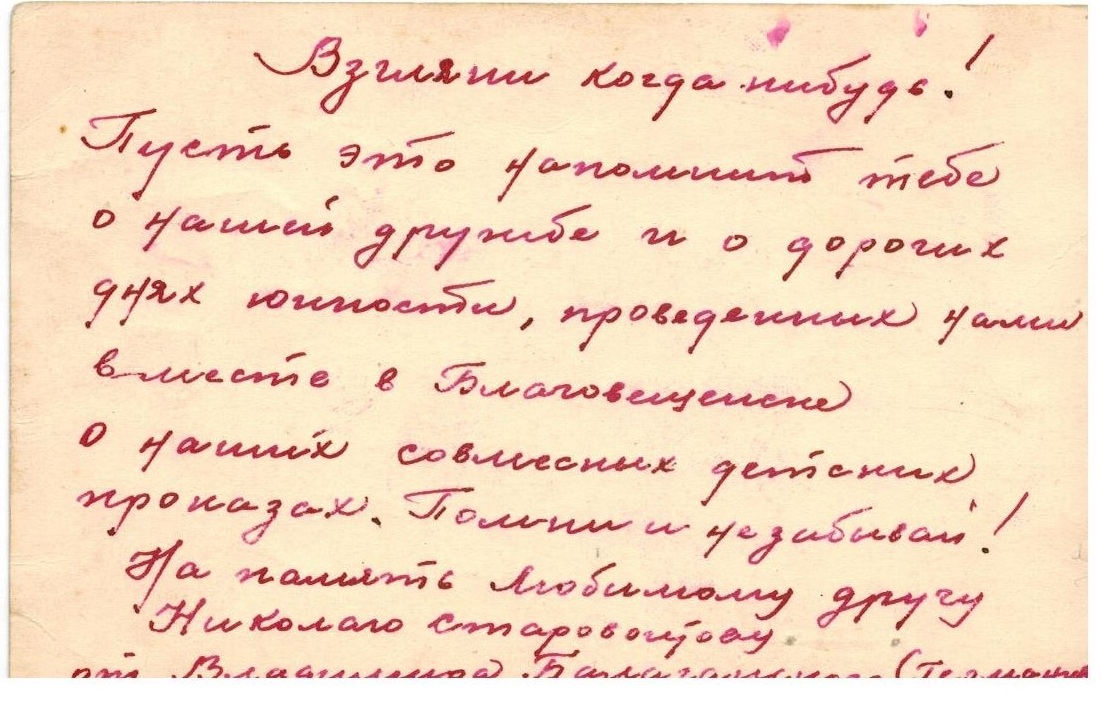 Взгляни когда нибудь!
Пусть это напомнит тебе
о нашей дружбе и о дорогих
днях юности, проведенных нами
вместе в Благовещенске
О наших совмесных детских
проказах. Помни и не забывай!
На память Любимому другу
Николаю Старовойтову
от Владимира